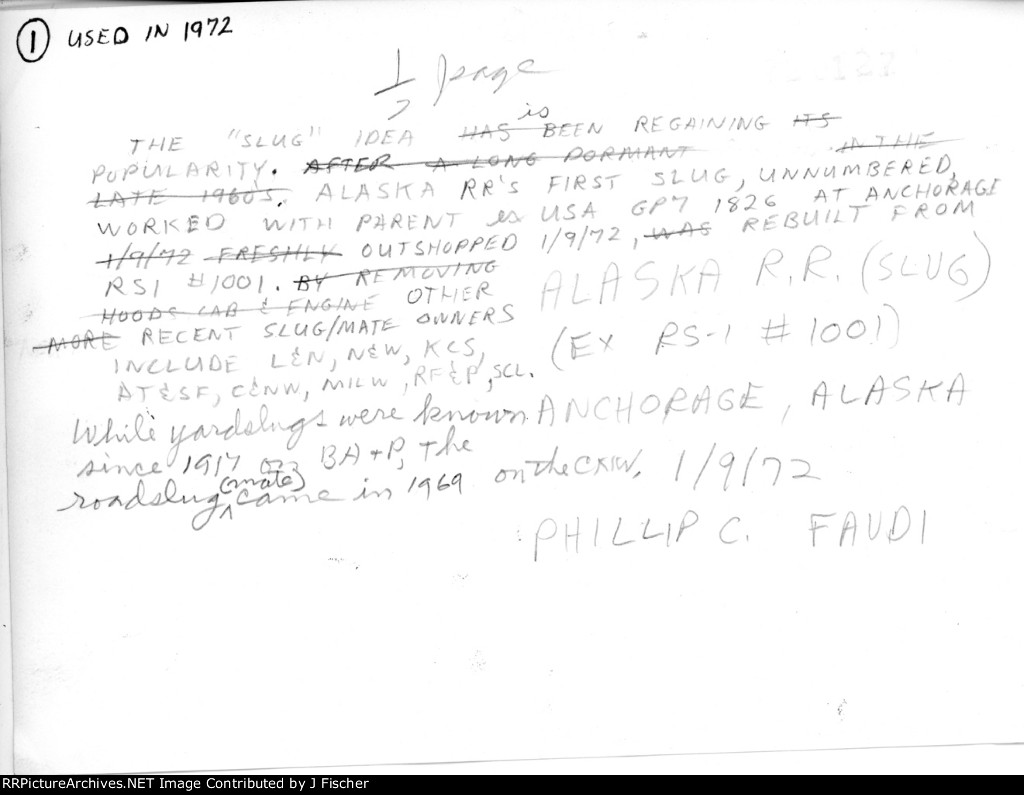 1 USED IN 1972
1/2 page
is
THE "SLUG" IDEA HAS BEEN REGAINING ITS
POPULARITY. AFTER A LONG DORMANT IN THE
LATE 1960'S. ALASKA RR'S FIRST SLUG, UNNUMBERED,
WORKED WITH PARENT USA GP7 1826 AT ANCHORAGE
1/9/72 FRESHLY OUTSHOPPED 1/9/72, WAS REBUILT FROM
RS1 #1001. BY REMOVING
HOODS CAB & ENGINE OTHER
MORE RECENT SLUG/MATE OWNERS
INCLUDE L&N, N&W, KCS,
AT&SF, C&NW, MILW, RF&P, SCL.
While yardslugs were known
since 1917 on BA+P, the
roadslug (mate) came in 1969 on the C&NW.
ALASKA R.R. (SLUG)
(EX RS-1 #1001)
ANCHORAGE, ALASKA
1/9/72
PHILLIP C. FAUDI
RRPictureArchives.NET Image Contributed by J Fischer